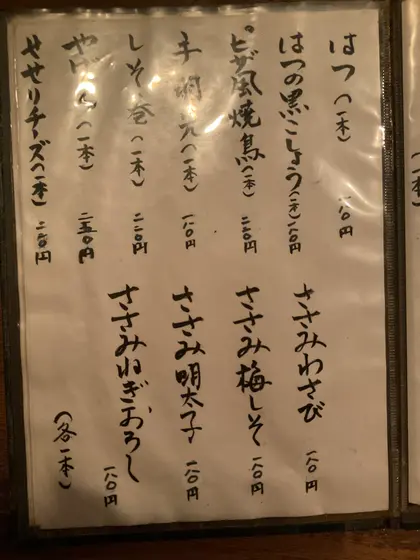 はつ(一本) 一八〇円
はつの黒こしょう(一本)一八〇円
ピザ風焼鳥(一本) 二二〇円
手羽先(一本) 一八〇円
しそ巻(一本) 二二〇円
(一本) 二五〇円
せせりチーズ(一本) 二二〇円
ささみわさび 一八〇円
ささみ梅しそ 一八〇円
ささみ明太子 一八〇円
ささみねぎおろし 一八〇円
(各一本)